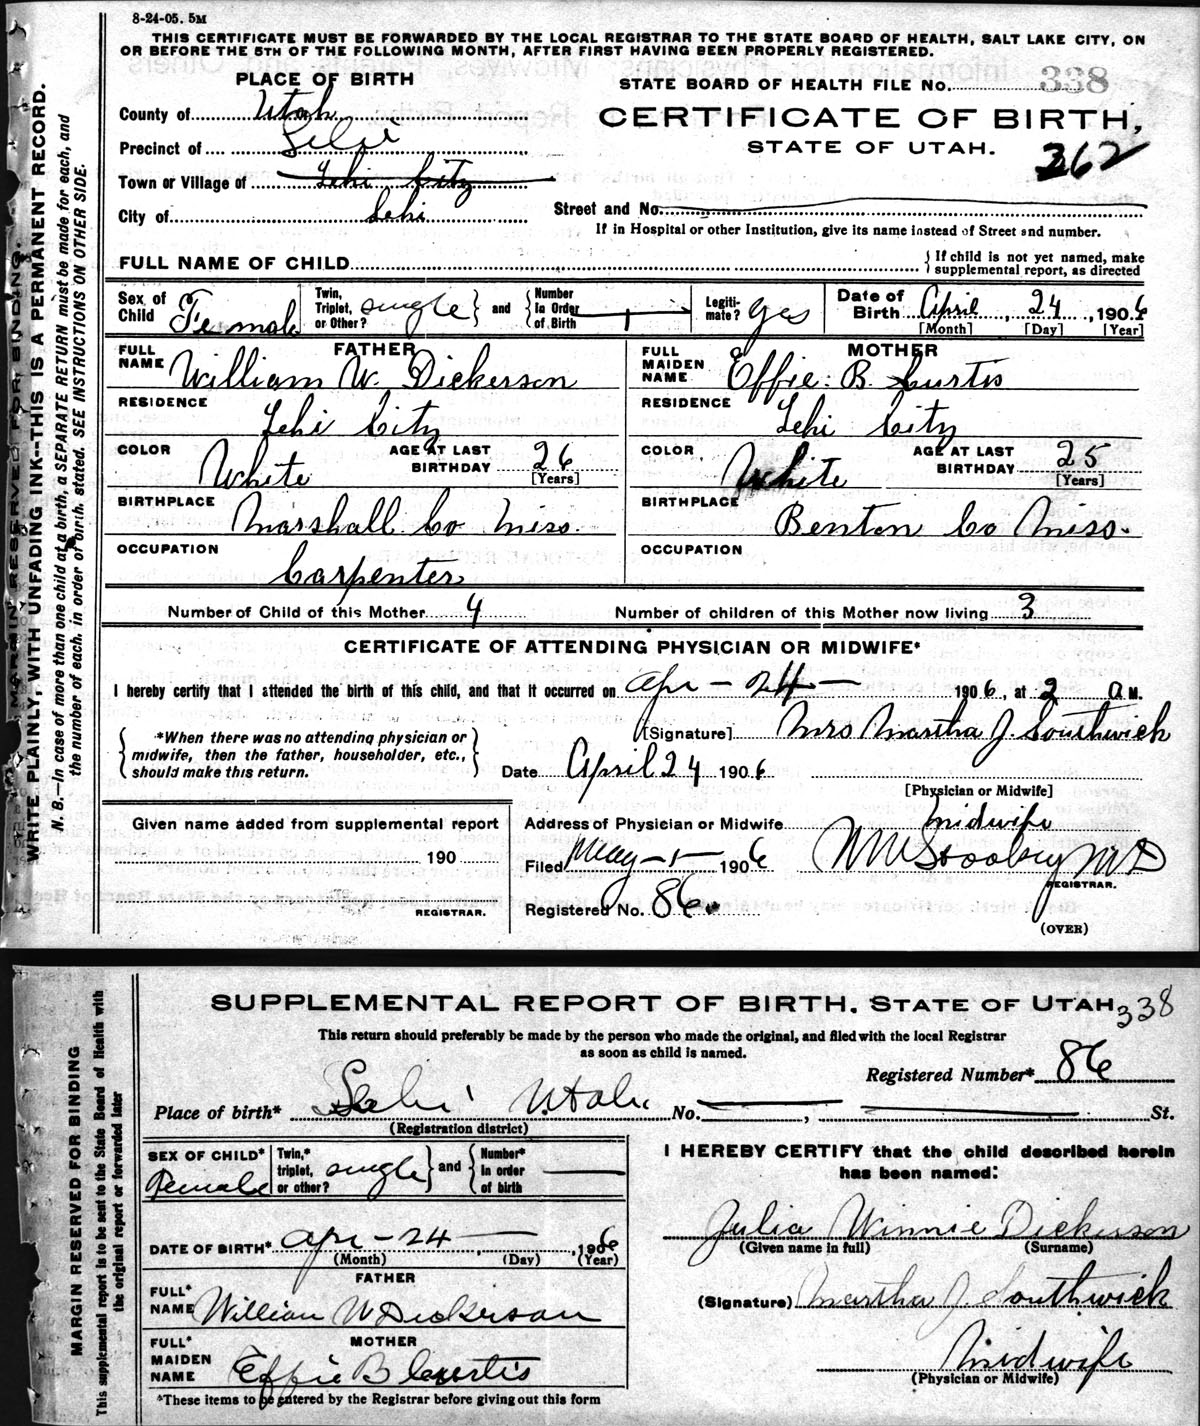 8-24-05. 5M
THIS CERTIFICATE MUST BE FORWARDED BY THE LOCAL REGISTRAR TO THE STATE BOARD OF HEALTH, SALT LAKE CITY, ON
OR BEFORE THE 5TH OF THE FOLLOWING MONTH, AFTER FIRST HAVING BEEN PROPERLY REGISTERED.
PLACE OF BIRTH
STATE BOARD OF HEALTH FILE No. 338
County of Utah
CERTIFICATE OF BIRTH,
Precinct of Lehi
STATE OF UTAH.
362
Town or Village of Lehi City
City of Lehi
Street and No.
If in Hospital or other Institution, give its name instead of Street and number.
FULL NAME OF CHILD
{ If child is not yet named, make
supplemental report, as directed
Sex of Child Female
Twin, Triplet, or Other? single } and { Number In Order of Birth 1
Legiti-mate? yes
Date of Birth April 24, 1906
[Month] [Day] [Year]
FATHER
FULL NAME William W. Dickerson
MOTHER
FULL MAIDEN NAME Effie B. Curtis
RESIDENCE Lehi City
RESIDENCE Lehi City
COLOR White AGE AT LAST BIRTHDAY 26 [Years]
COLOR White AGE AT LAST BIRTHDAY 25 [Years]
BIRTHPLACE Marshall Co Miss.
BIRTHPLACE Benton Co Miss.
OCCUPATION Carpenter
OCCUPATION
Number of Child of this Mother 4
Number of children of this Mother now living 3
CERTIFICATE OF ATTENDING PHYSICIAN OR MIDWIFE*
I hereby certify that I attended the birth of this child, and that it occurred on Apr - 24 - 1906, at 2 A M.
{ *When there was no attending physician or
midwife, then the father, householder, etc.,
should make this return. }
[Signature] Mrs Martha J. Southwick
Date April 24 1906
[Physician or Midwife]
Given name added from supplemental report
190
REGISTRAR.
Address of Physician or Midwife Midwife
Filed May - 1 - 1906
REGISTRAR.
Registered No. 86
(OVER)
MARGIN RESERVED FOR BINDING.
WRITE PLAINLY, WITH UNFADING INK--THIS IS A PERMANENT RECORD.
N. B.—In case of more than one child at a birth, a SEPARATE RETURN must be made for each, and
the number of each, in order of birth, stated. SEE INSTRUCTIONS ON OTHER SIDE.
SUPPLEMENTAL REPORT OF BIRTH. STATE OF UTAH. 338
This return should preferably be made by the person who made the original, and filed with the local Registrar
as soon as child is named.
Registered Number* 86
Place of birth* Lehi Utah No. , St.
(Registration district)
SEX OF CHILD* Female
Twin,* triplet, or other? single } and { Number* in order of birth
I HEREBY CERTIFY that the child described herein
has been named:
DATE OF BIRTH* Apr - 24 - , 1906
(Month) (Day) (Year)
Julia Winnie Dickerson
(Given name in full) (Surname)
FATHER
FULL* NAME William W Dickerson
(Signature) Martha J Southwick
MOTHER
FULL* MAIDEN NAME Effie B Curtis
Midwife
(Physician or Midwife)
*These items to be entered by the Registrar before giving out this form
MARGIN RESERVED FOR BINDING
This supplemental report is to be sent to the State Board of Health with
the original report or forwarded later